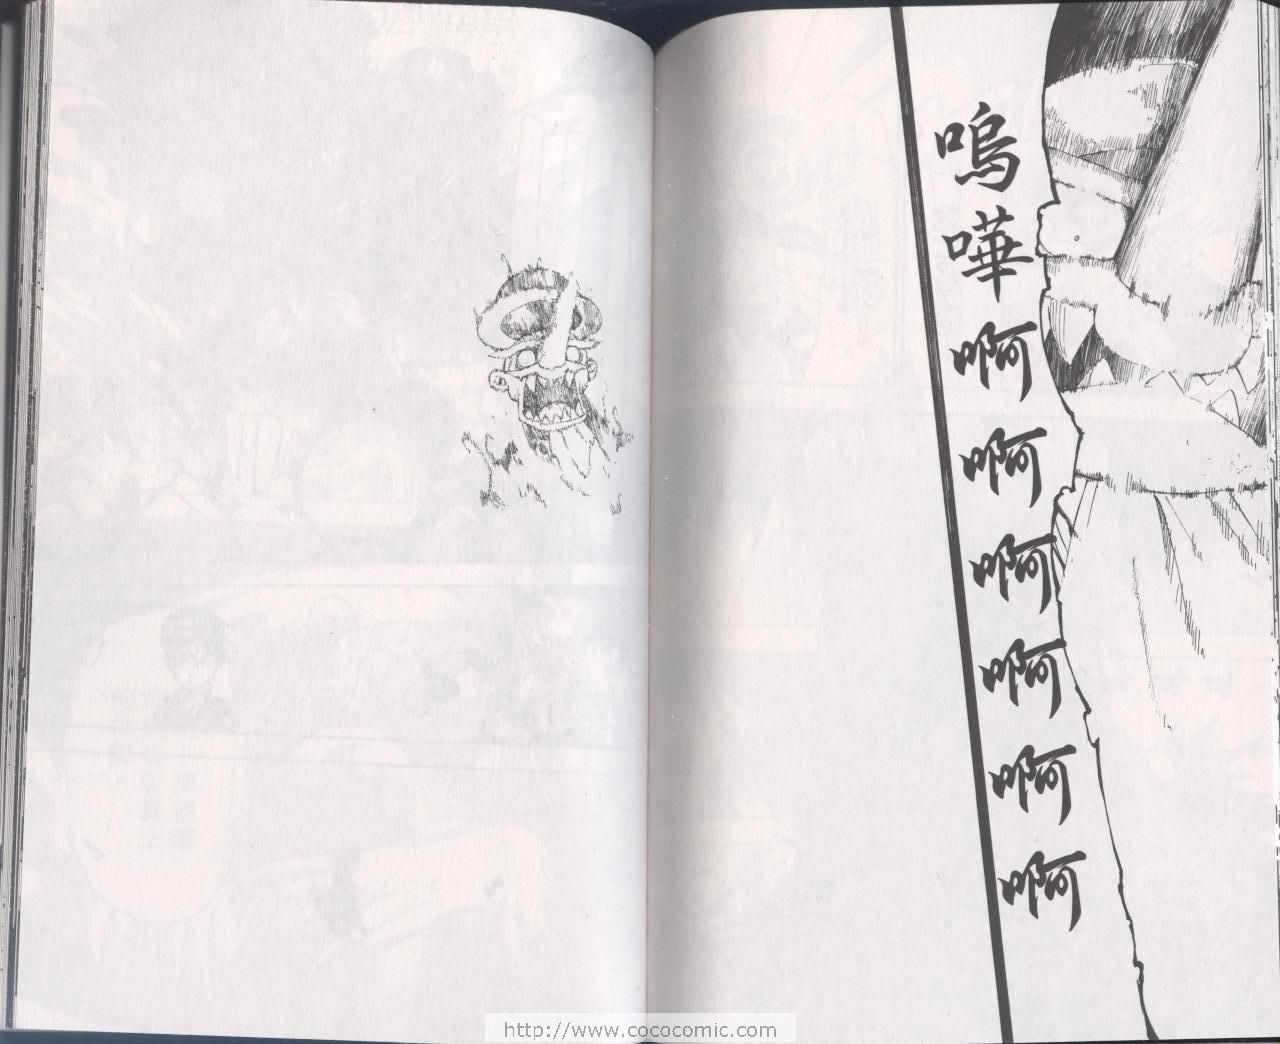 嗚嘩啊啊啊啊啊啊
http://www.cococomic.com